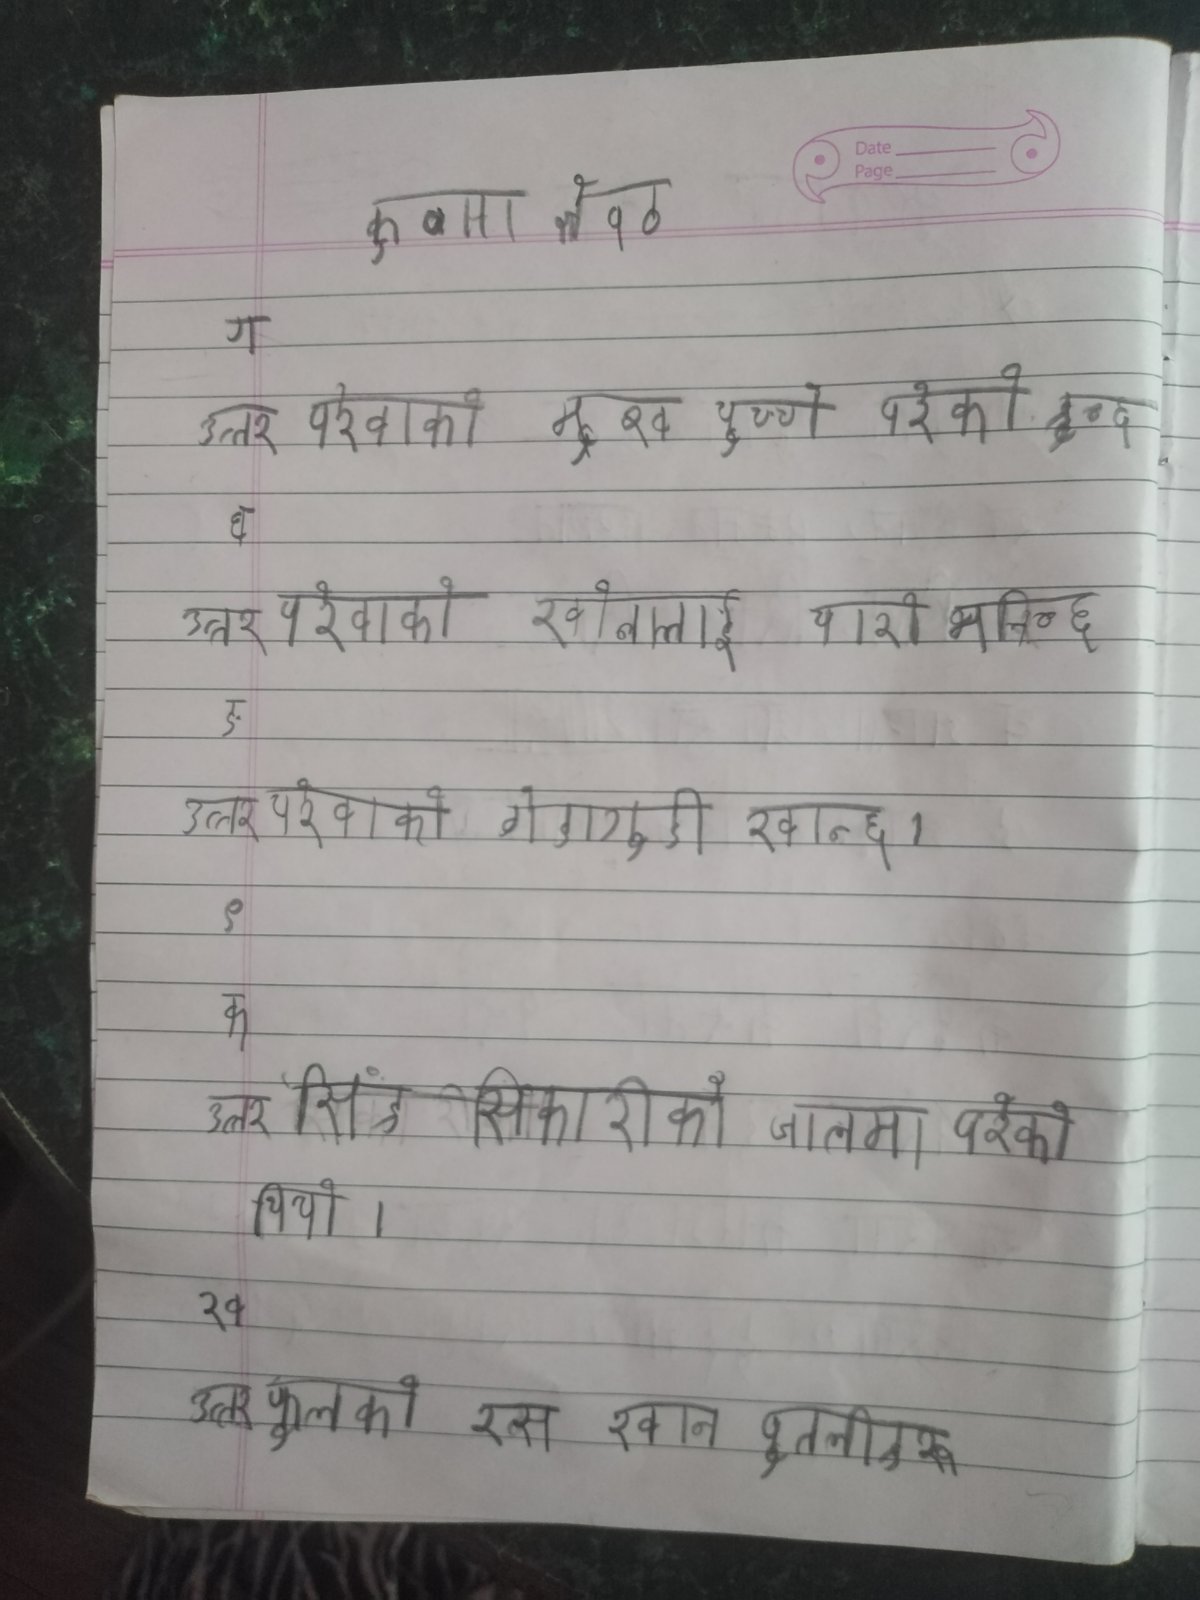 Date
Page
ग
उत्तर परेवाको मुख पुच्चो परेको हुन्द
घ
उत्तर परेवाको खोनालाई चारो भनिन्छ
ङ
उत्तर परेवाको गेडागुडी खान्छ।
१
क
उत्तर सिंह सिकारीको जालमा परेको
थियो ।
ख
उत्तर फुलको रस खान पुतलीहरू